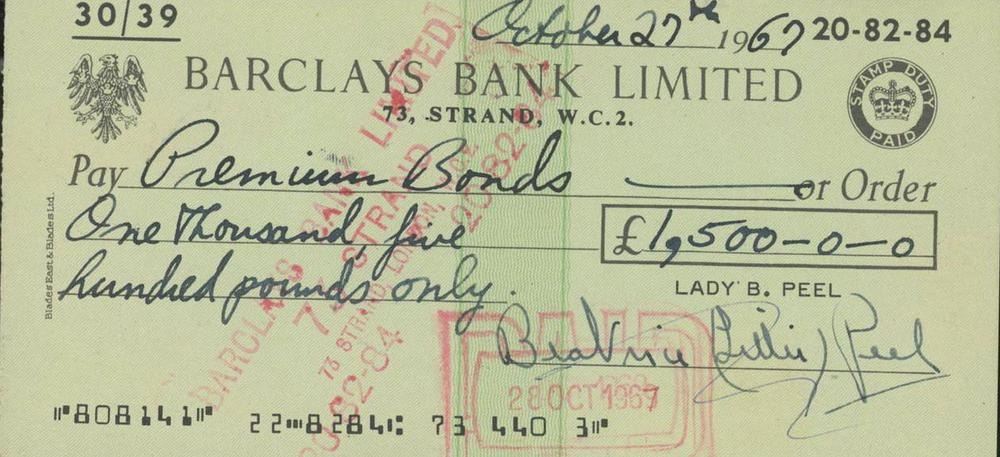 30/39
October 27th 1967 20-82-84
BARCLAYS BANK LIMITED
73, STRAND, W.C.2.
STAMP DUTY PAID
Pay Premium Bonds or Order
One Thousand, five
£1,500-0-0
hundred pounds only.
LADY B. PEEL
Beatrice (Lillie) Peel
Blades East & Blades Ltd.
BARCLAYS BANK LIMITED
73 STRAND
73 STRAND, LONDON,
20-82-84
20-82-84
PAID
28 OCT 1967
⑈808141⑈ 22⑉8284⑆ 73 440 3⑈